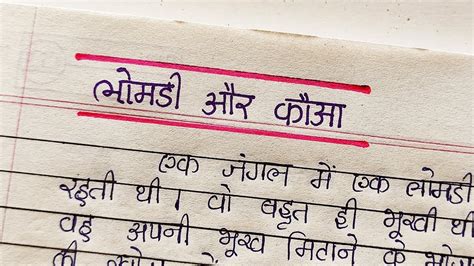 लोमडी और कौआ
एक जंगल में एक लोमडी
रहती थी। वो बहुत ही भूखी थी
वह अपनी भूख मिटाने के
की खोज में